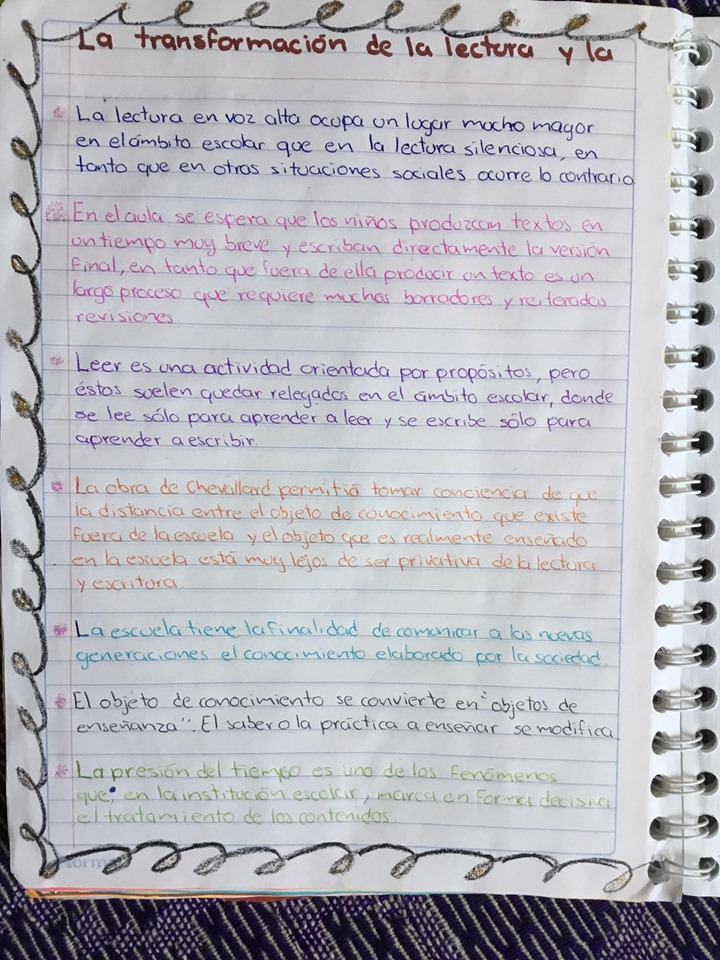 La transformación de la lectura y la
La lectura en voz alta ocupa un lugar mucho mayor
en el ámbito escolar que en la lectura silenciosa, en
tanto que en otros situaciones sociales ocurre lo contrario
En el aula se espera que los niños produzcan textos en
un tiempo muy breve y escriban directamente la versión
final, en tanto que fuera de ella producir un texto es un
largo proceso que requiere muchos borradores y reiterados
revisiones
Leer es una actividad orientada por propósitos, pero
éstos suelen quedar relegados en el ámbito escolar, donde
se lee sólo para aprender a leer y se escribe sólo para
aprender a escribir.
La obra de Chevallard permitió tomar conciencia de que
la distancia entre el objeto de conocimiento que existe
fuera de la escuela y el objeto que es realmente enseñado
en la escuela está muy lejos de ser privativa de la lectura
y escritura.
La escuela tiene la finalidad de comunicar a las nuevas
generaciones el conocimiento elaborado por la sociedad.
El objeto de conocimiento se convierte en "objetos de
enseñanza". El saber o la práctica a enseñar se modifica
La presión del tiempo es uno de los fenómenos
que, en la institución escolar, marca en forma decisiva
el tratamiento de los contenidos.